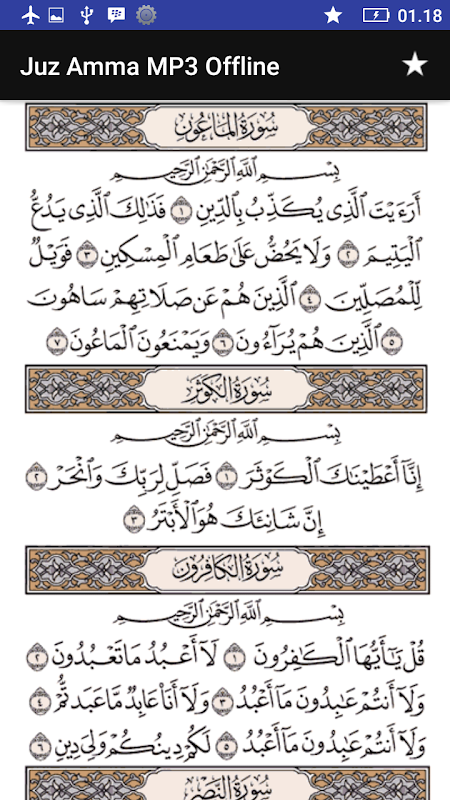 01.18
Juz Amma MP3 Offline
سُورَةُ المَاعُونِ
بِسْمِ اللَّهِ الرَّحْمَٰنِ الرَّحِيمِ
أَرَءَيْتَ الَّذِي يُكَذِّبُ بِالدِّينِ ١ فَذَٰلِكَ الَّذِي يَدُعُّ
الْيَتِيمَ ٢ وَلَا يَحُضُّ عَلَىٰ طَعَامِ الْمِسْكِينِ ٣ فَوَيْلٌ
لِّلْمُصَلِّينَ ٤ الَّذِينَ هُمْ عَن صَلَاتِهِمْ سَاهُونَ
٥ الَّذِينَ هُمْ يُرَآءُونَ ٦ وَيَمْنَعُونَ الْمَاعُونَ ٧
سُورَةُ الكَوْثَرِ
بِسْمِ اللَّهِ الرَّحْمَٰنِ الرَّحِيمِ
إِنَّا أَعْطَيْنَاكَ الْكَوْثَرَ ١ فَصَلِّ لِرَبِّكَ وَانْحَرْ ٢
إِنَّ شَانِئَكَ هُوَ الْأَبْتَرُ ٣
سُورَةُ الكَافِرُونَ
بِسْمِ اللَّهِ الرَّحْمَٰنِ الرَّحِيمِ
قُلْ يَٰٓأَيُّهَا الْكَٰفِرُونَ ١ لَآ أَعْبُدُ مَا تَعْبُدُونَ ٢
وَلَآ أَنتُمْ عَٰبِدُونَ مَآ أَعْبُدُ ٣ وَلَآ أَنَا۠ عَابِدٌ مَّا عَبَدتُّمْ ٤
وَلَآ أَنتُمْ عَٰبِدُونَ مَآ أَعْبُدُ ٥ لَكُمْ دِينُكُمْ وَلِيَ دِينِ ٦
سُورَةُ النَّصْرِ